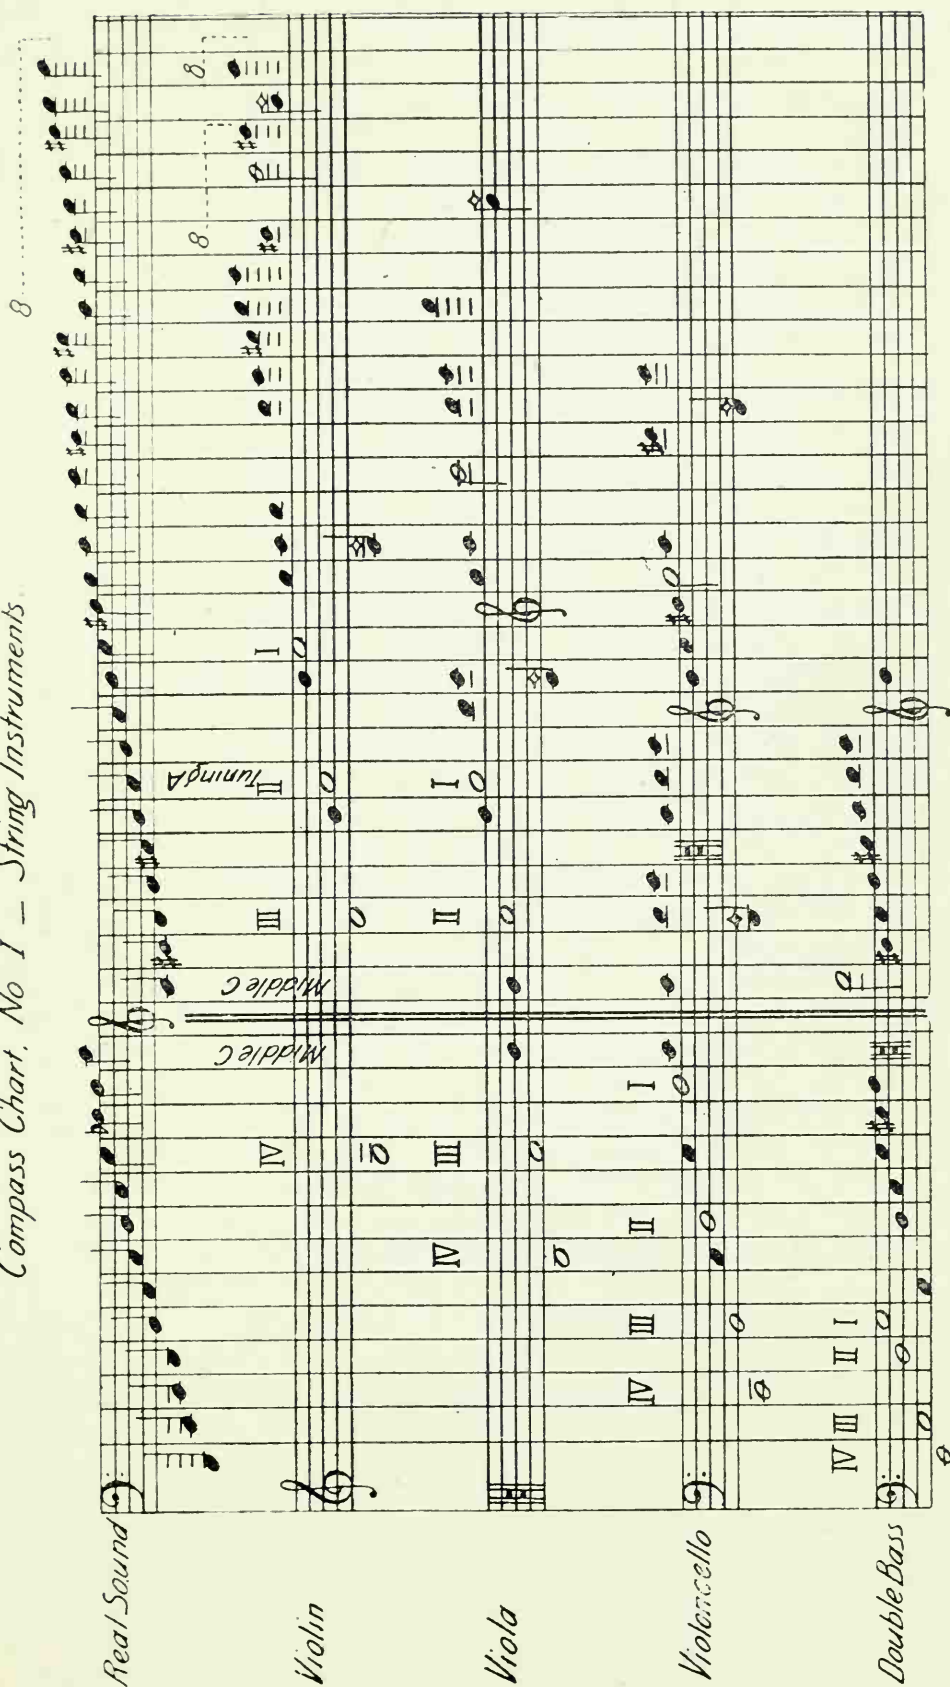 Compass Chart. No I – String Instruments
8
Real Sound
8 8
Violin
IV Middle C Middle C III II Tuning A I
Viola
IV III II I
Violoncello
IV III II I
Double Bass
IV III II I